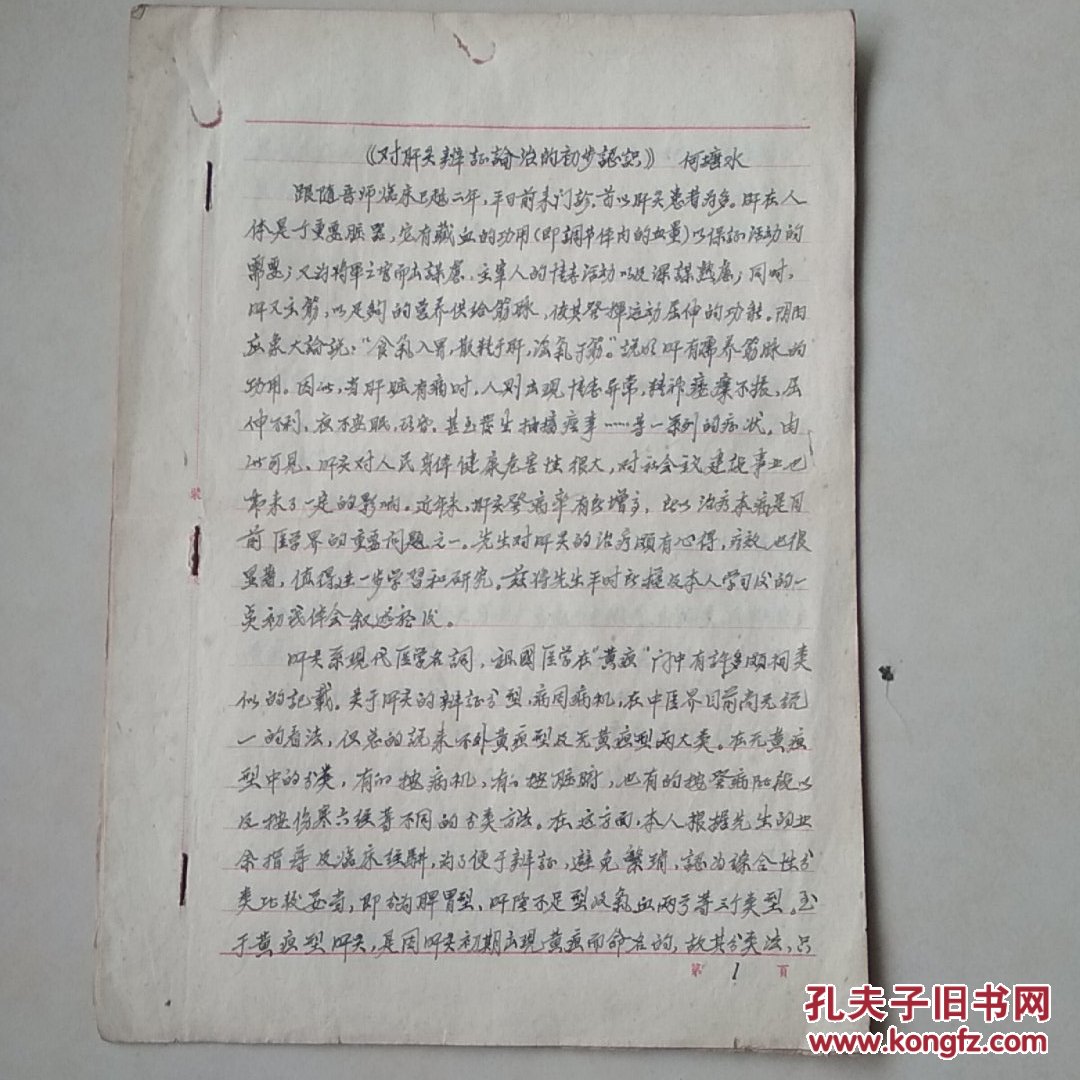 《对肝炎辨証論治的初步認識》 何 水
跟随吾师临床已 二年，平日前来门診，首以肝炎患者为多。肝在人
体是一个重要脏器，它有藏血的功用（即調节体内的血量）以保証活动的
需要；又为将軍之官而出謀慮，主宰人的情志活动以及深謀熟慮；同时，
肝又主筋，以足夠的营养供给筋脉，使其發揮运动屈伸的功能。阴阳
应象大論説："食氣入胃，散精于肝，淫氣于筋。"説明肝有濡养筋脉的
功用。因此，当肝脏有病时，人则出现情志异常，精神 不振，屈
伸不利，夜不安眠， 甚至發生抽搐痉 ……等一系列的症状。由
此可見，肝炎对人民身体健康危害性很大，对社会主义建設事业也
带来了一定的影响。近年来，肝炎發病率有所增多， 以治疗本病是目
前医学界的重要问题之一。先生对肝炎的治疗頗有心得，疗效也很
显著，值得进一步学習和研究。兹将先生平时所授及本人学习后的一
点初浅体会叙述于后。
肝炎系现代医学名詞，祖國医学在"黄疸"门中有許多頗相类
似的記載。关于肝炎的辨証分型，病因病机，在中医界目前尚无統
一的看法，但总的説来不外黄疸型及无黄疸型两大类。在无黄疸
型中的分类，有的按病机，有的按脏腑，也有的按發病阶段以
及按伤寒六经等不同的分类方法。在这方面，本人根据先生的业
余指导及临床经驗，为了便于辨証，避免繁瑣，認为綜合性分
类比较妥当，即分为脾胃型，肝陰不足型及氣血两亏等三个类型。至
于黄疸型肝炎，是因肝炎初期出現黄疸而命名的，故其分类法，只
第 1 頁
孔夫子旧书网
www.kongfz.com